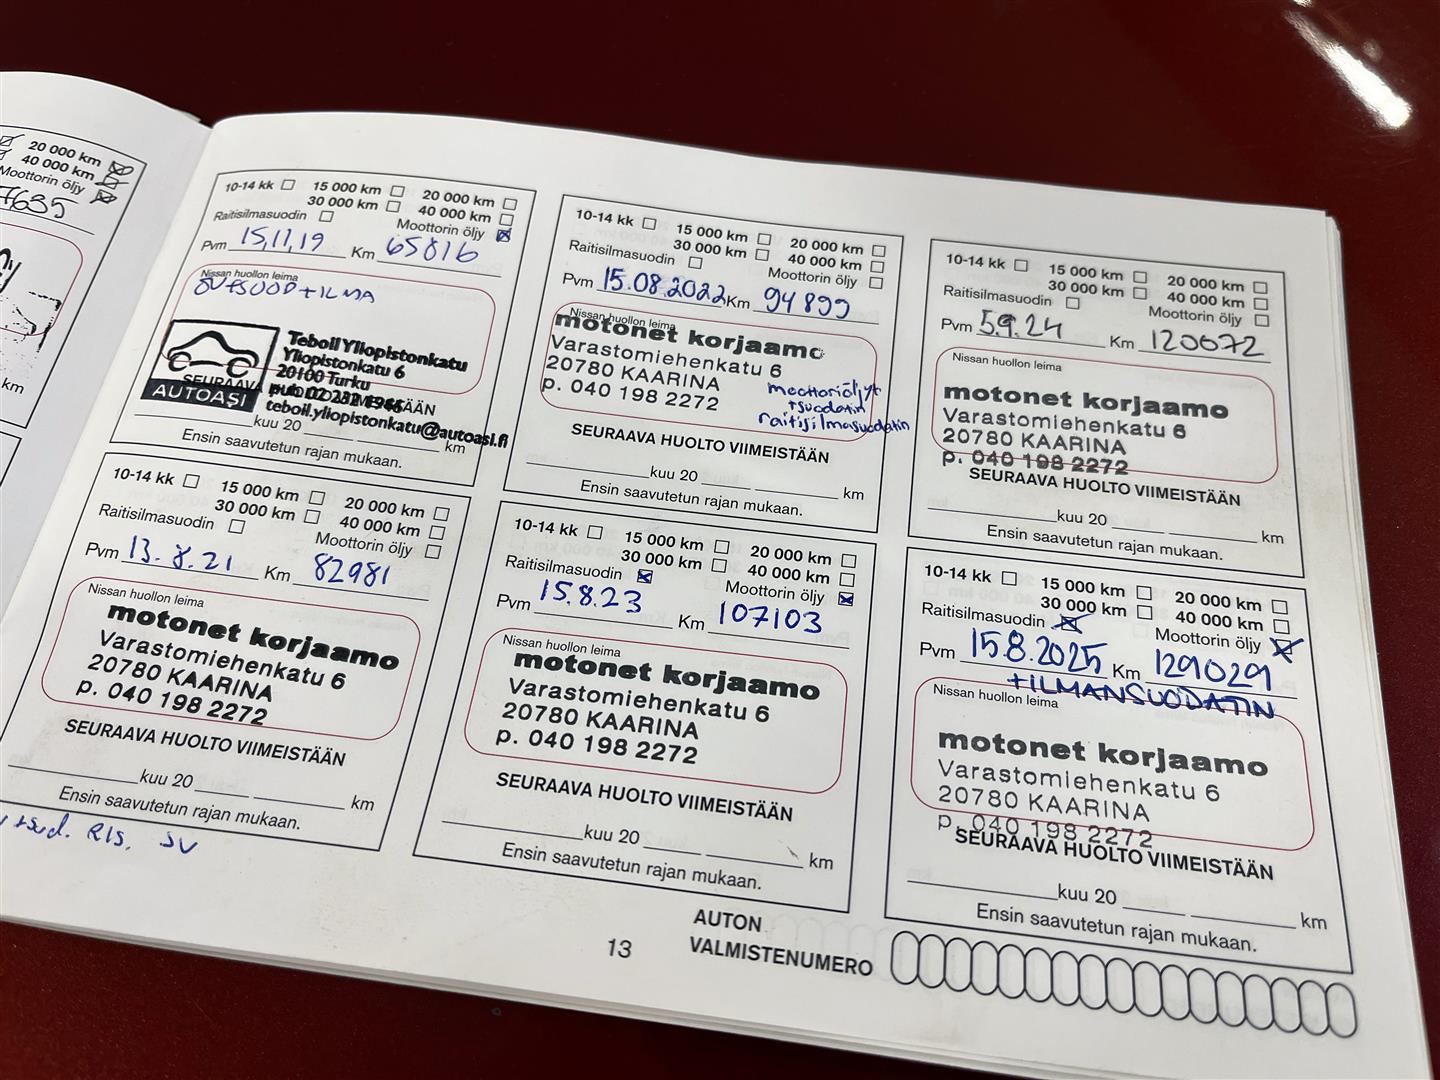 20 000 km
40 000 km
Moottorin öljy
7635
km
10-14 kk 15 000 km 20 000 km
30 000 km 40 000 km
Raitisilmasuodin Moottorin öljy
Pvm 15,11,19 Km 65816
Nissan huollon leima
ÖLY+SUOD+ILMA
Teboil Yliopistonkatu
Yliopistonkatu 6
20100 Turku
puh 02 232 1946
teboil.yliopistonkatu@autoasi.fi
AUTOASI
SEURAAVA HUOLTO VIIMEISTÄÄN
kuu 20 km
Ensin saavutetun rajan mukaan.
10-14 kk 15 000 km 20 000 km
30 000 km 40 000 km
Raitisilmasuodin Moottorin öljy
Pvm 13.8.21 Km 82981
Nissan huollon leima
motonet korjaamo
Varastomiehenkatu 6
20780 KAARINA
p. 040 198 2272
SEURAAVA HUOLTO VIIMEISTÄÄN
kuu 20 km
Ensin saavutetun rajan mukaan.
10-14 kk 15 000 km 20 000 km
30 000 km 40 000 km
Raitisilmasuodin Moottorin öljy
Pvm 15.08.2022 Km 94899
Nissan huollon leima
motonet korjaamo
Varastomiehenkatu 6
20780 KAARINA
p. 040 198 2272
moottoriöljyt
+suodatin
raitisilmasuodatin
SEURAAVA HUOLTO VIIMEISTÄÄN
kuu 20 km
Ensin saavutetun rajan mukaan.
10-14 kk 15 000 km 20 000 km
30 000 km 40 000 km
Raitisilmasuodin Moottorin öljy
Pvm 15.8.23 Km 107103
Nissan huollon leima
motonet korjaamo
Varastomiehenkatu 6
20780 KAARINA
p. 040 198 2272
SEURAAVA HUOLTO VIIMEISTÄÄN
kuu 20 km
Ensin saavutetun rajan mukaan.
10-14 kk 15 000 km 20 000 km
30 000 km 40 000 km
Raitisilmasuodin Moottorin öljy
Pvm 5.9.24 Km 120672
Nissan huollon leima
motonet korjaamo
Varastomiehenkatu 6
20780 KAARINA
p. 040 198 2272
SEURAAVA HUOLTO VIIMEISTÄÄN
kuu 20 km
Ensin saavutetun rajan mukaan.
10-14 kk 15 000 km 20 000 km
30 000 km 40 000 km
Raitisilmasuodin Moottorin öljy
Pvm 15.8.2025 Km 129029
+ILMANSUODATIN
Nissan huollon leima
motonet korjaamo
Varastomiehenkatu 6
20780 KAARINA
p. 040 198 2272
SEURAAVA HUOLTO VIIMEISTÄÄN
kuu 20 km
Ensin saavutetun rajan mukaan.
13
AUTON
VALMISTENUMERO